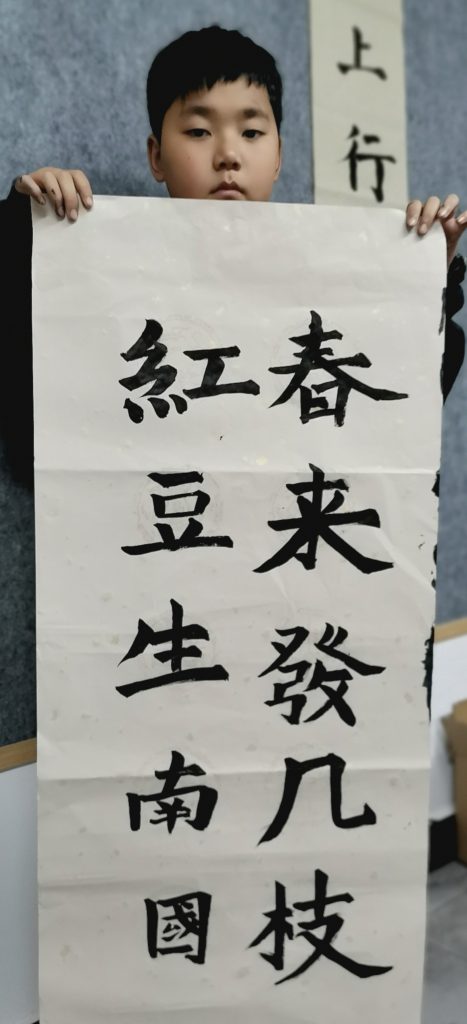 紅豆生南國
春来發几枝
上行